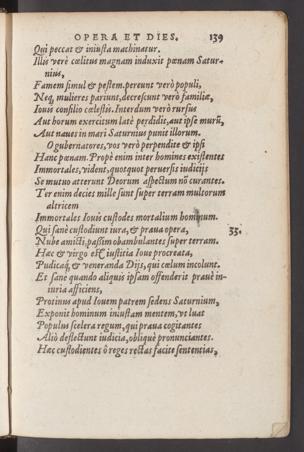 OPERA ET DIES. 139
Qui peccat & iniusta machinatur.
Illis verè cœlitus magnam induxit pœnam Satur-
nius,
Famem simul & pestem. pereunt verò populi,
Neq; mulieres pariunt, decrescunt verò familiæ,
Iouis consilio cælestis. Interdum verò rursus
Aut horum exercitum latè perdidit, aut ipse murū,
Aut naues in mari Saturnius punit illorum.
O gubernatores, vos verò perpendite & ipsi
Hanc pœnam. Propè enim inter homines existentes
Immortales, vident, quotquot peruersis iudicijs
Se mutuo atterunt Deorum aspectum nō curantes.
Ter enim decies mille sunt super terram multorum
altricem
Immortales Iouis custodes mortalium hominum.
Qui sanè custodiunt iura, & praua opera, 35.
Nube amicti, passim obambulantes super terram.
Hæc & virgo est iustitia Ioue procreata,
Pudicaq́; & veneranda Dijs, qui cælum incolunt.
Et sanè quando aliquis ipsam offenderit prauè in-
iuria afficiens,
Protinus apud Iouem patrem sedens Saturnium,
Exponit hominum iniustam mentem, vt luat
Populus scelera regum, qui praua cogitantes
Aliò deflectunt iudicia, obliquè pronunciantes.
Hæc custodientes ô reges rectas facite sententias,